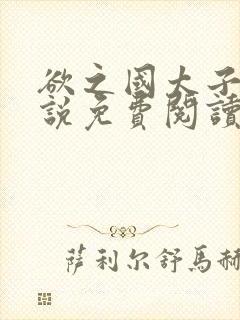 欲之國大子
說免費閱讀
萨利尔舒馬赫